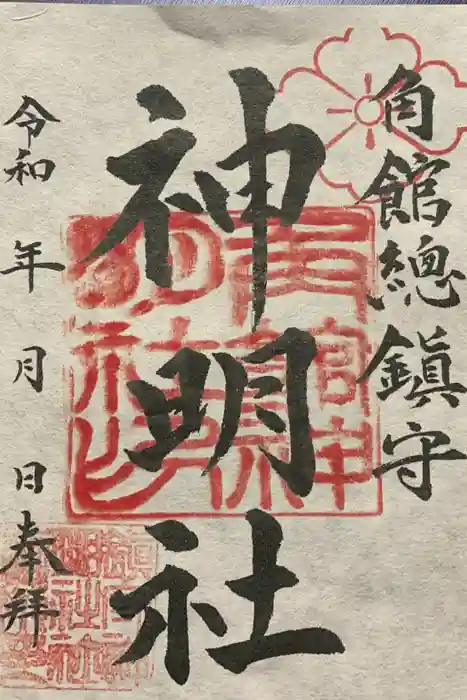 角館總鎮守
神明社
令和 年 月 日奉拜